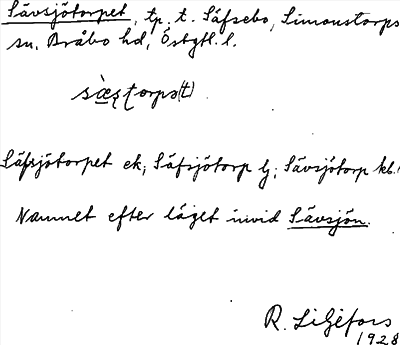 Sävsjötorpet, tp. t. Säfsebo, Simonstorps
sn. Bråbo hd, Östgtl. l.
Säfsjötorpet ek; Säfsjötorp lj; Sävsjötorp kb.
Namnet efter läget invid Sävsjön.
R. Liljefors
1928